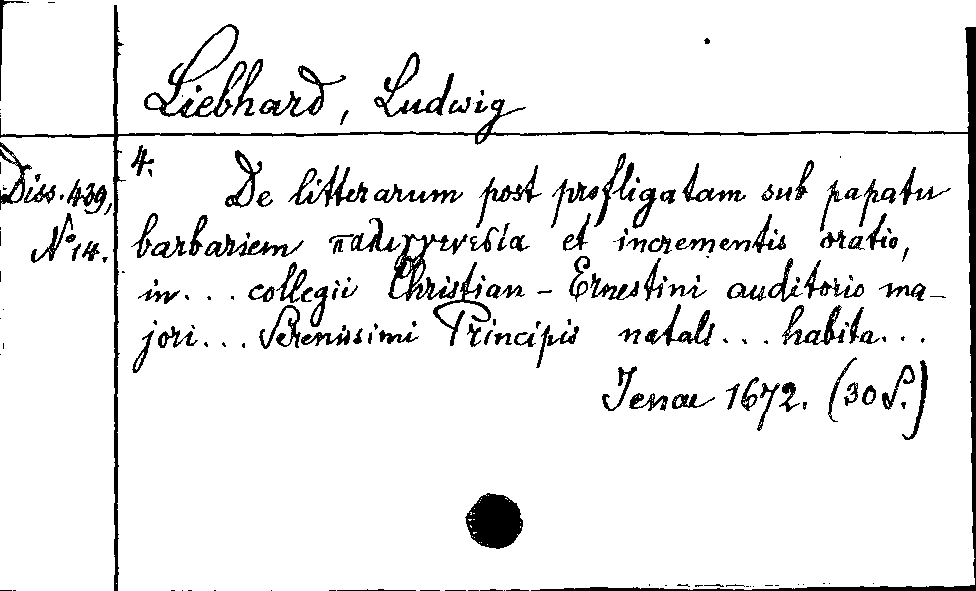 Liebhard, Ludwig
4.
Diss. 439,
De litterarum post profligatam sub papatu
No 14.
barbariem παλιγγενεσία et incrementis oratio,
in... collegii Christian-Ernestini auditorio ma-
jori... Serenissimi Principis natali... habita...
Jenae 1672. (30 S.)